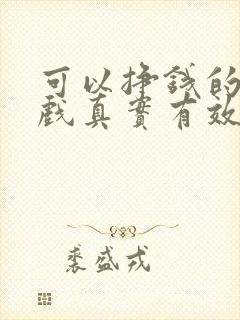 可以挣钱的
戏真实有效
裘盛戎